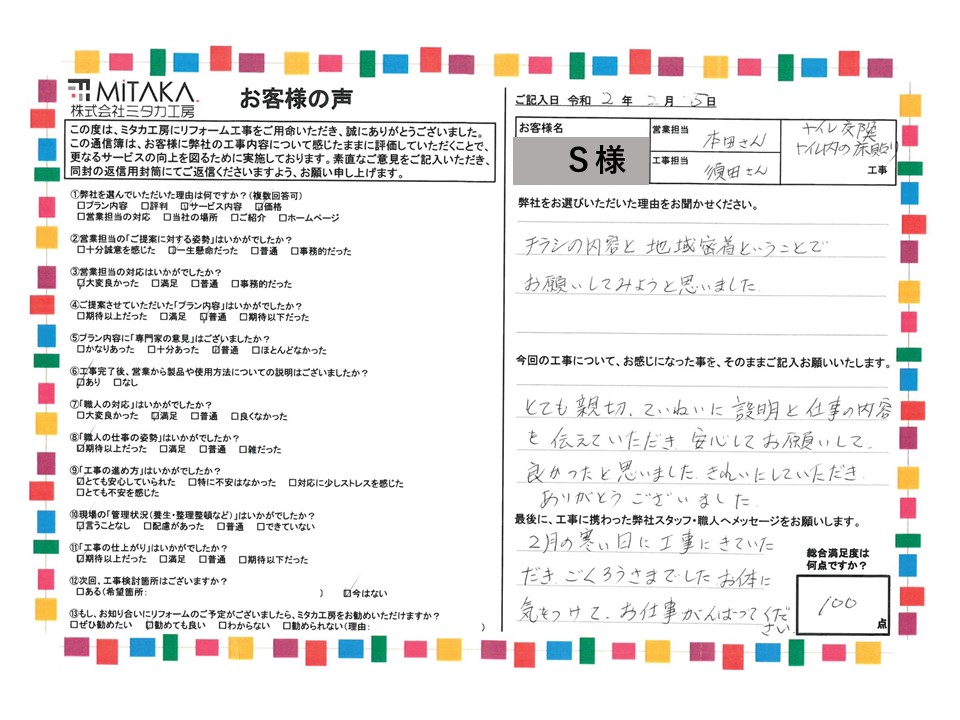 MiTAKA
株式会社ミタカ工房
お客様の声
この度は、ミタカ工房にリフォーム工事をご用命いただき、誠にありがとうございました。
この通信簿は、お客様に弊社の工事内容について感じたままに評価していただくことで、
更なるサービスの向上を図るために実施しております。素直なご意見をご記入いただき、
同封の返信用封筒にてご返信くださいますよう、お願い申し上げます。
①弊社を選んでいただいた理由は何ですか?(複数回答可)
□プラン内容 □評判 ☑サービス内容 ☑価格
□営業担当の対応 □当社の場所 □ご紹介 □ホームページ
②営業担当の「ご提案に対する姿勢」はいかがでしたか?
□十分誠意を感じた ☑一生懸命だった □普通 □事務的だった
③営業担当の対応はいかがでしたか?
☑大変良かった □満足 □普通 □事務的だった
④ご提案させていただいた「プラン内容」はいかがでしたか?
□期待以上だった □満足 ☑普通 □期待以下だった
⑤プラン内容に「専門家の意見」はございましたか?
□かなりあった □十分あった ☑普通 □ほとんどなかった
⑥工事完了後、営業から製品や使用方法についての説明はございましたか?
☑あり □なし
⑦「職人の対応」はいかがでしたか?
□大変良かった ☑満足 □普通 □良くなかった
⑧「職人の仕事の姿勢」はいかがでしたか?
☑期待以上だった □満足 □普通 □雑だった
⑨「工事の進め方」はいかがでしたか?
☑とても安心していられた □特に不安はなかった □対応に少しストレスを感じた
□とても不安を感じた
⑩現場の「管理状況(養生・整理整頓など)」はいかがでしたか?
☑言うことなし □配慮があった □普通 □できていない
⑪「工事の仕上がり」はいかがでしたか?
☑期待以上だった □満足 □普通 □期待以下だった
⑫次回、工事検討箇所はございますか?
□ある(希望箇所: ) ☑今はない
⑬もし、お知り合いにリフォームのご予定がございましたら、ミタカ工房をお勧めいただけますか?
□ぜひ勧めたい ☑勧めても良い □わからない □勧められない(理由: )
ご記入日 令和 2 年 2 月 5 日
お客様名
S様
営業担当 本田さん
工事担当 須田さん
トイレ交換
トイレ内の床貼り
工事
弊社をお選びいただいた理由をお聞かせください。
チラシの内容と地域密着ということで
お願いしてみようと思いました
今回の工事について、お感じになった事を、そのままご記入お願いいたします。
とても親切、ていねいに説明と仕事の内容
を伝えていただき 安心してお願いして
良かったと思いました きれいにしていただき
ありがとうございました
最後に、工事に携わった弊社スタッフ・職人へメッセージをお願いします。
2月の寒い日に工事にきていた
だき ごくろうさまでした お体に
気をつけて、お仕事がんばってくだ
さい
総合満足度は
何点ですか?
100
点